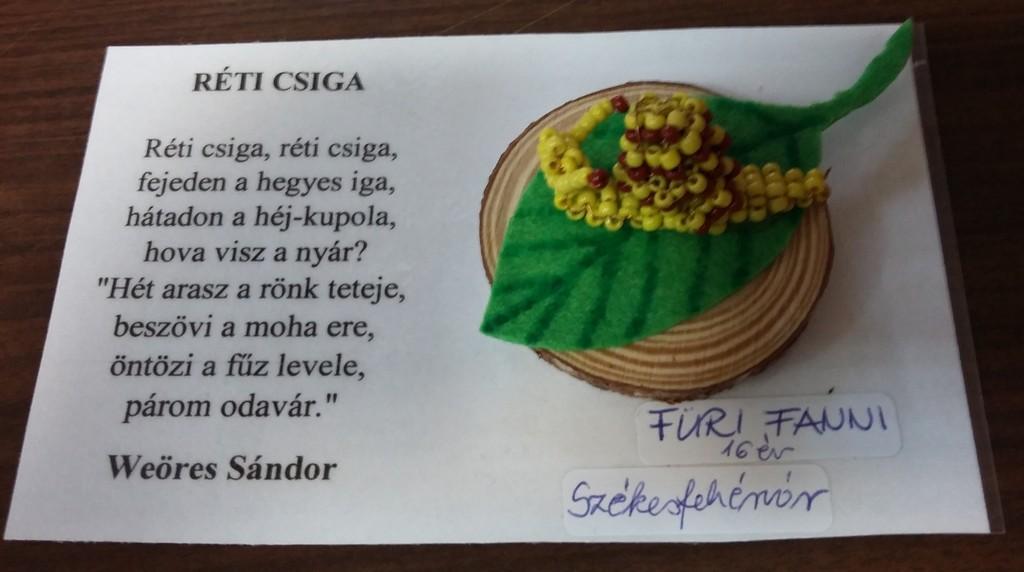 RÉTI CSIGA
Réti csiga, réti csiga,
fejeden a hegyes iga,
hátadon a héj-kupola,
hova visz a nyár?
"Hét arasz a rönk teteje,
beszövi a moha ere,
öntözi a fűz levele,
párom odavár."
Weöres Sándor
FÜRI FANNI
16 év
Székesfehérvár